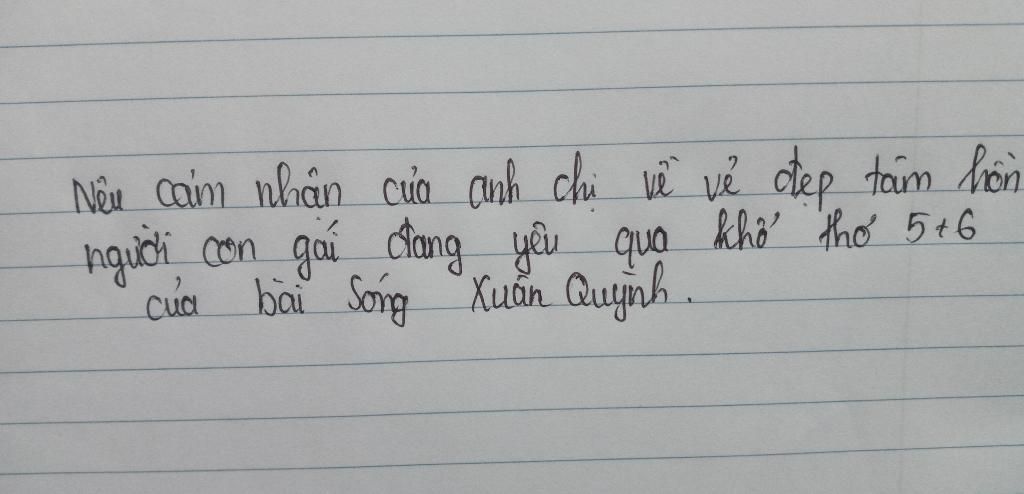 Nêu cảm nhận của anh chị về vẻ đẹp tâm hồn
người con gái đang yêu qua khổ thơ 5+6
của bài Sóng Xuân Quỳnh.